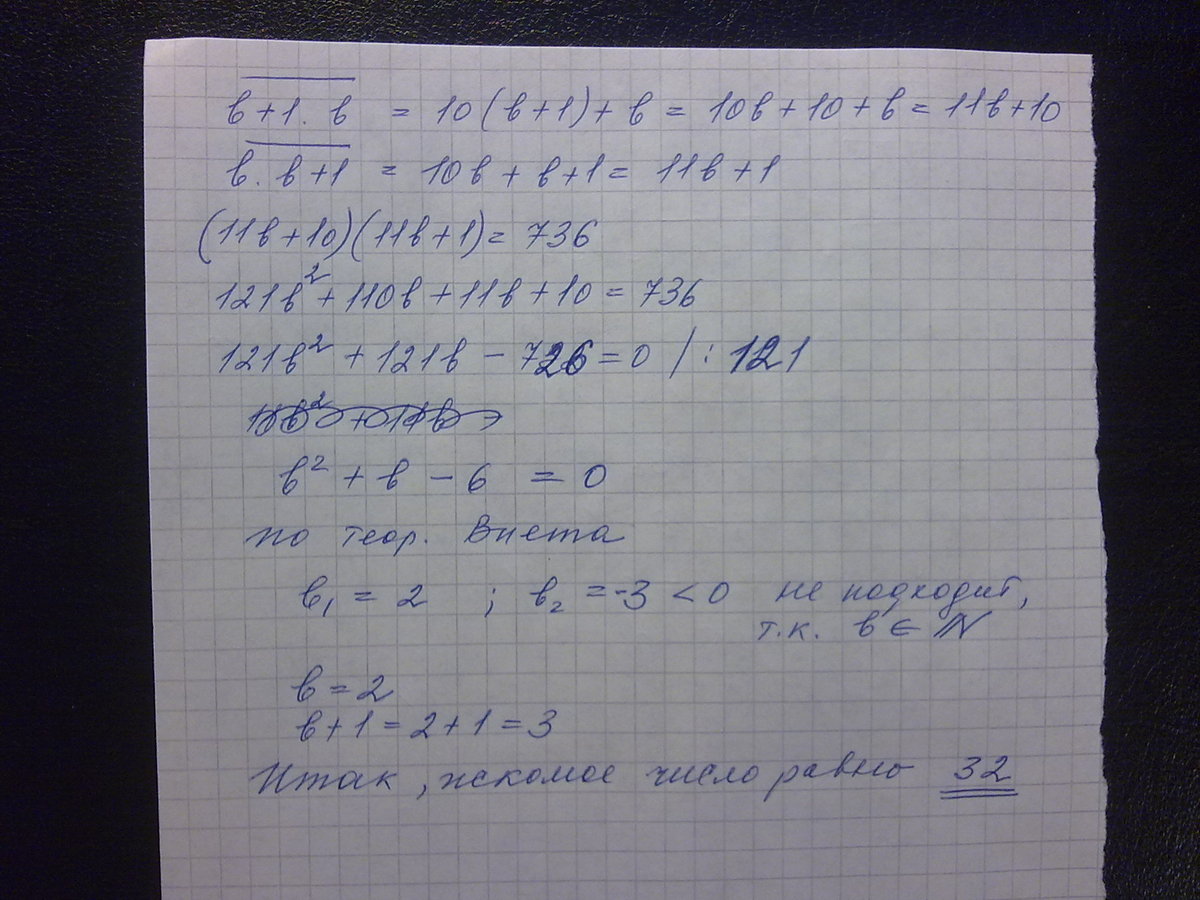 в+1. в = 10(в+1)+в = 10в+10+в = 11в+10
в. в+1 = 10в + в+1 = 11в+1
(11в+10)(11в+1) = 736
121в²+110в+11в+10 = 736
121в² + 121в - 726 = 0 / : 121
в² + в - 6 = 0
по теор. Виета
в₁ = 2 ; в₂ = -3 < 0 не подходит,
т.к. в ∈ N
в = 2
в+1 = 2+1 = 3
Итак, искомое число равно 32